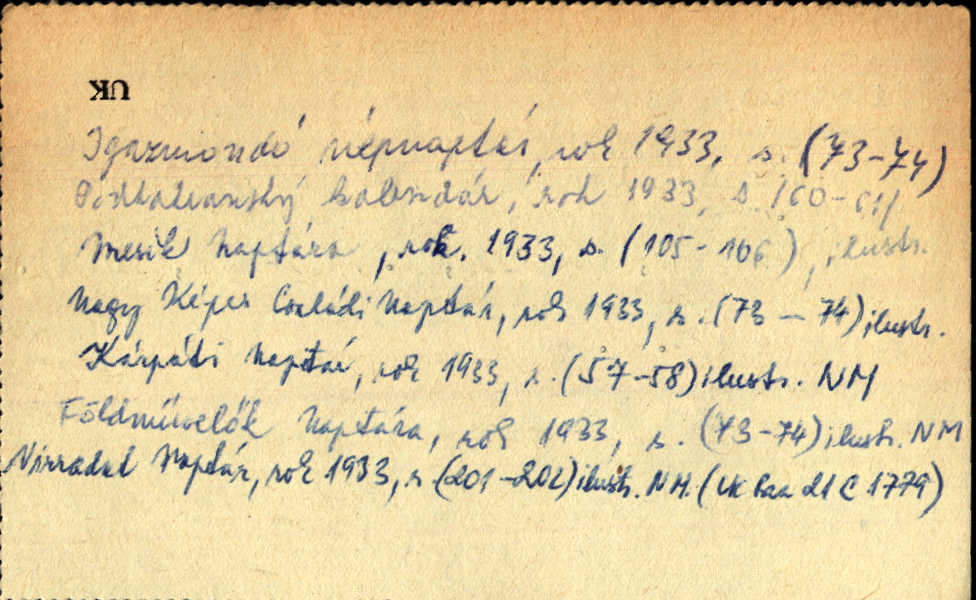 UK
Igazmondó népnaptár, rok 1933, s. (73-74)
Podkarpatský kalendár, rok 1933, s. (60-61)
Mesék Naptára, rok. 1933, s. (105-106), ilustr.
Nagy Képes Családi Naptár, rok 1933, s. (73-74) ilustr.
Kárpáti Naptár, rok 1933, s. (57-58) ilustr. NM
Földművelők Naptára, rok 1933, s. (73-74) ilustr. NM
Virradat Naptár, rok 1933, s. (201-202) ilustr. NM. (UK 21 C 1779)